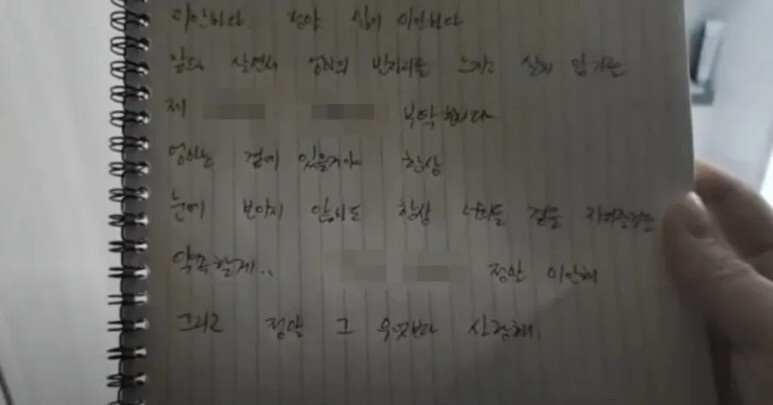 미안하다 정말 많이 미안하다
앞으로 살면서 엄마의 빈자리를 느끼고 살게
제 부탁합니다
엄마는 곁에 있을거야 항상
눈에 보이지 않아도 항상 너희들 곁을
약속할게..  정말 미안해
그리고 정말 그 무엇보다 사랑해.